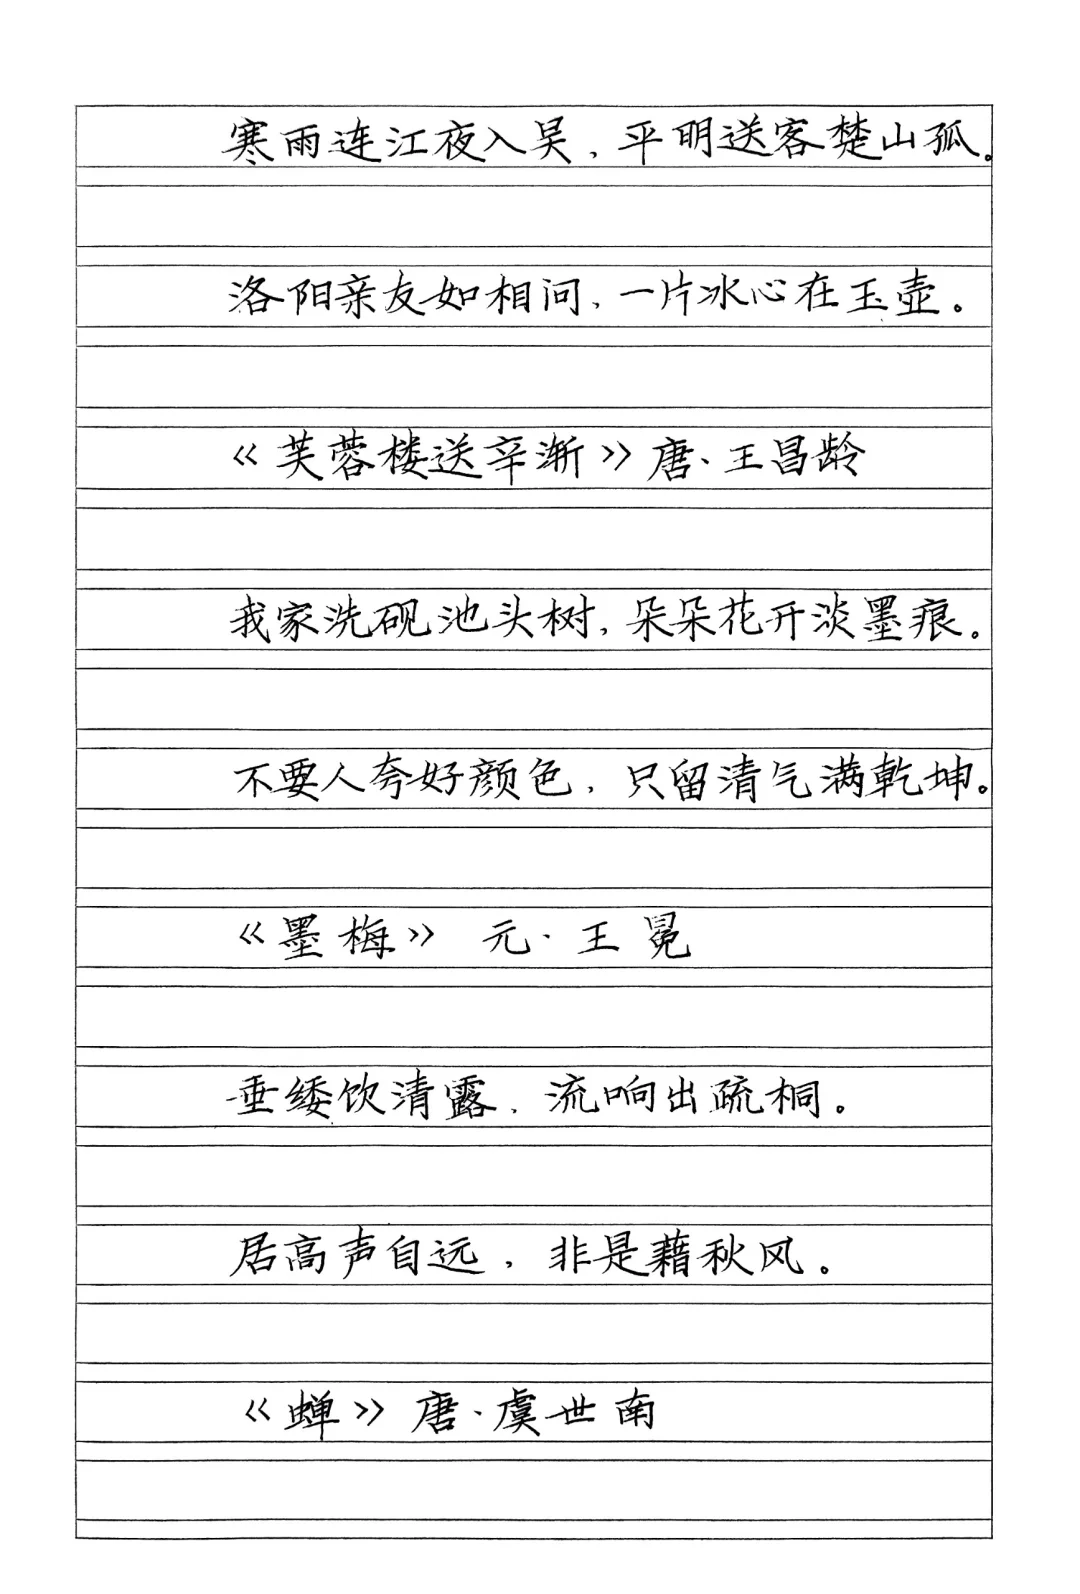 寒雨连江夜入吴，平明送客楚山孤。
洛阳亲友如相问，一片冰心在玉壶。
《芙蓉楼送辛渐》唐·王昌龄
我家洗砚池头树，朵朵花开淡墨痕。
不要人夸好颜色，只留清气满乾坤。
《墨梅》 元·王冕
垂緌饮清露，流响出疏桐。
居高声自远，非是藉秋风。
《蝉》唐·虞世南